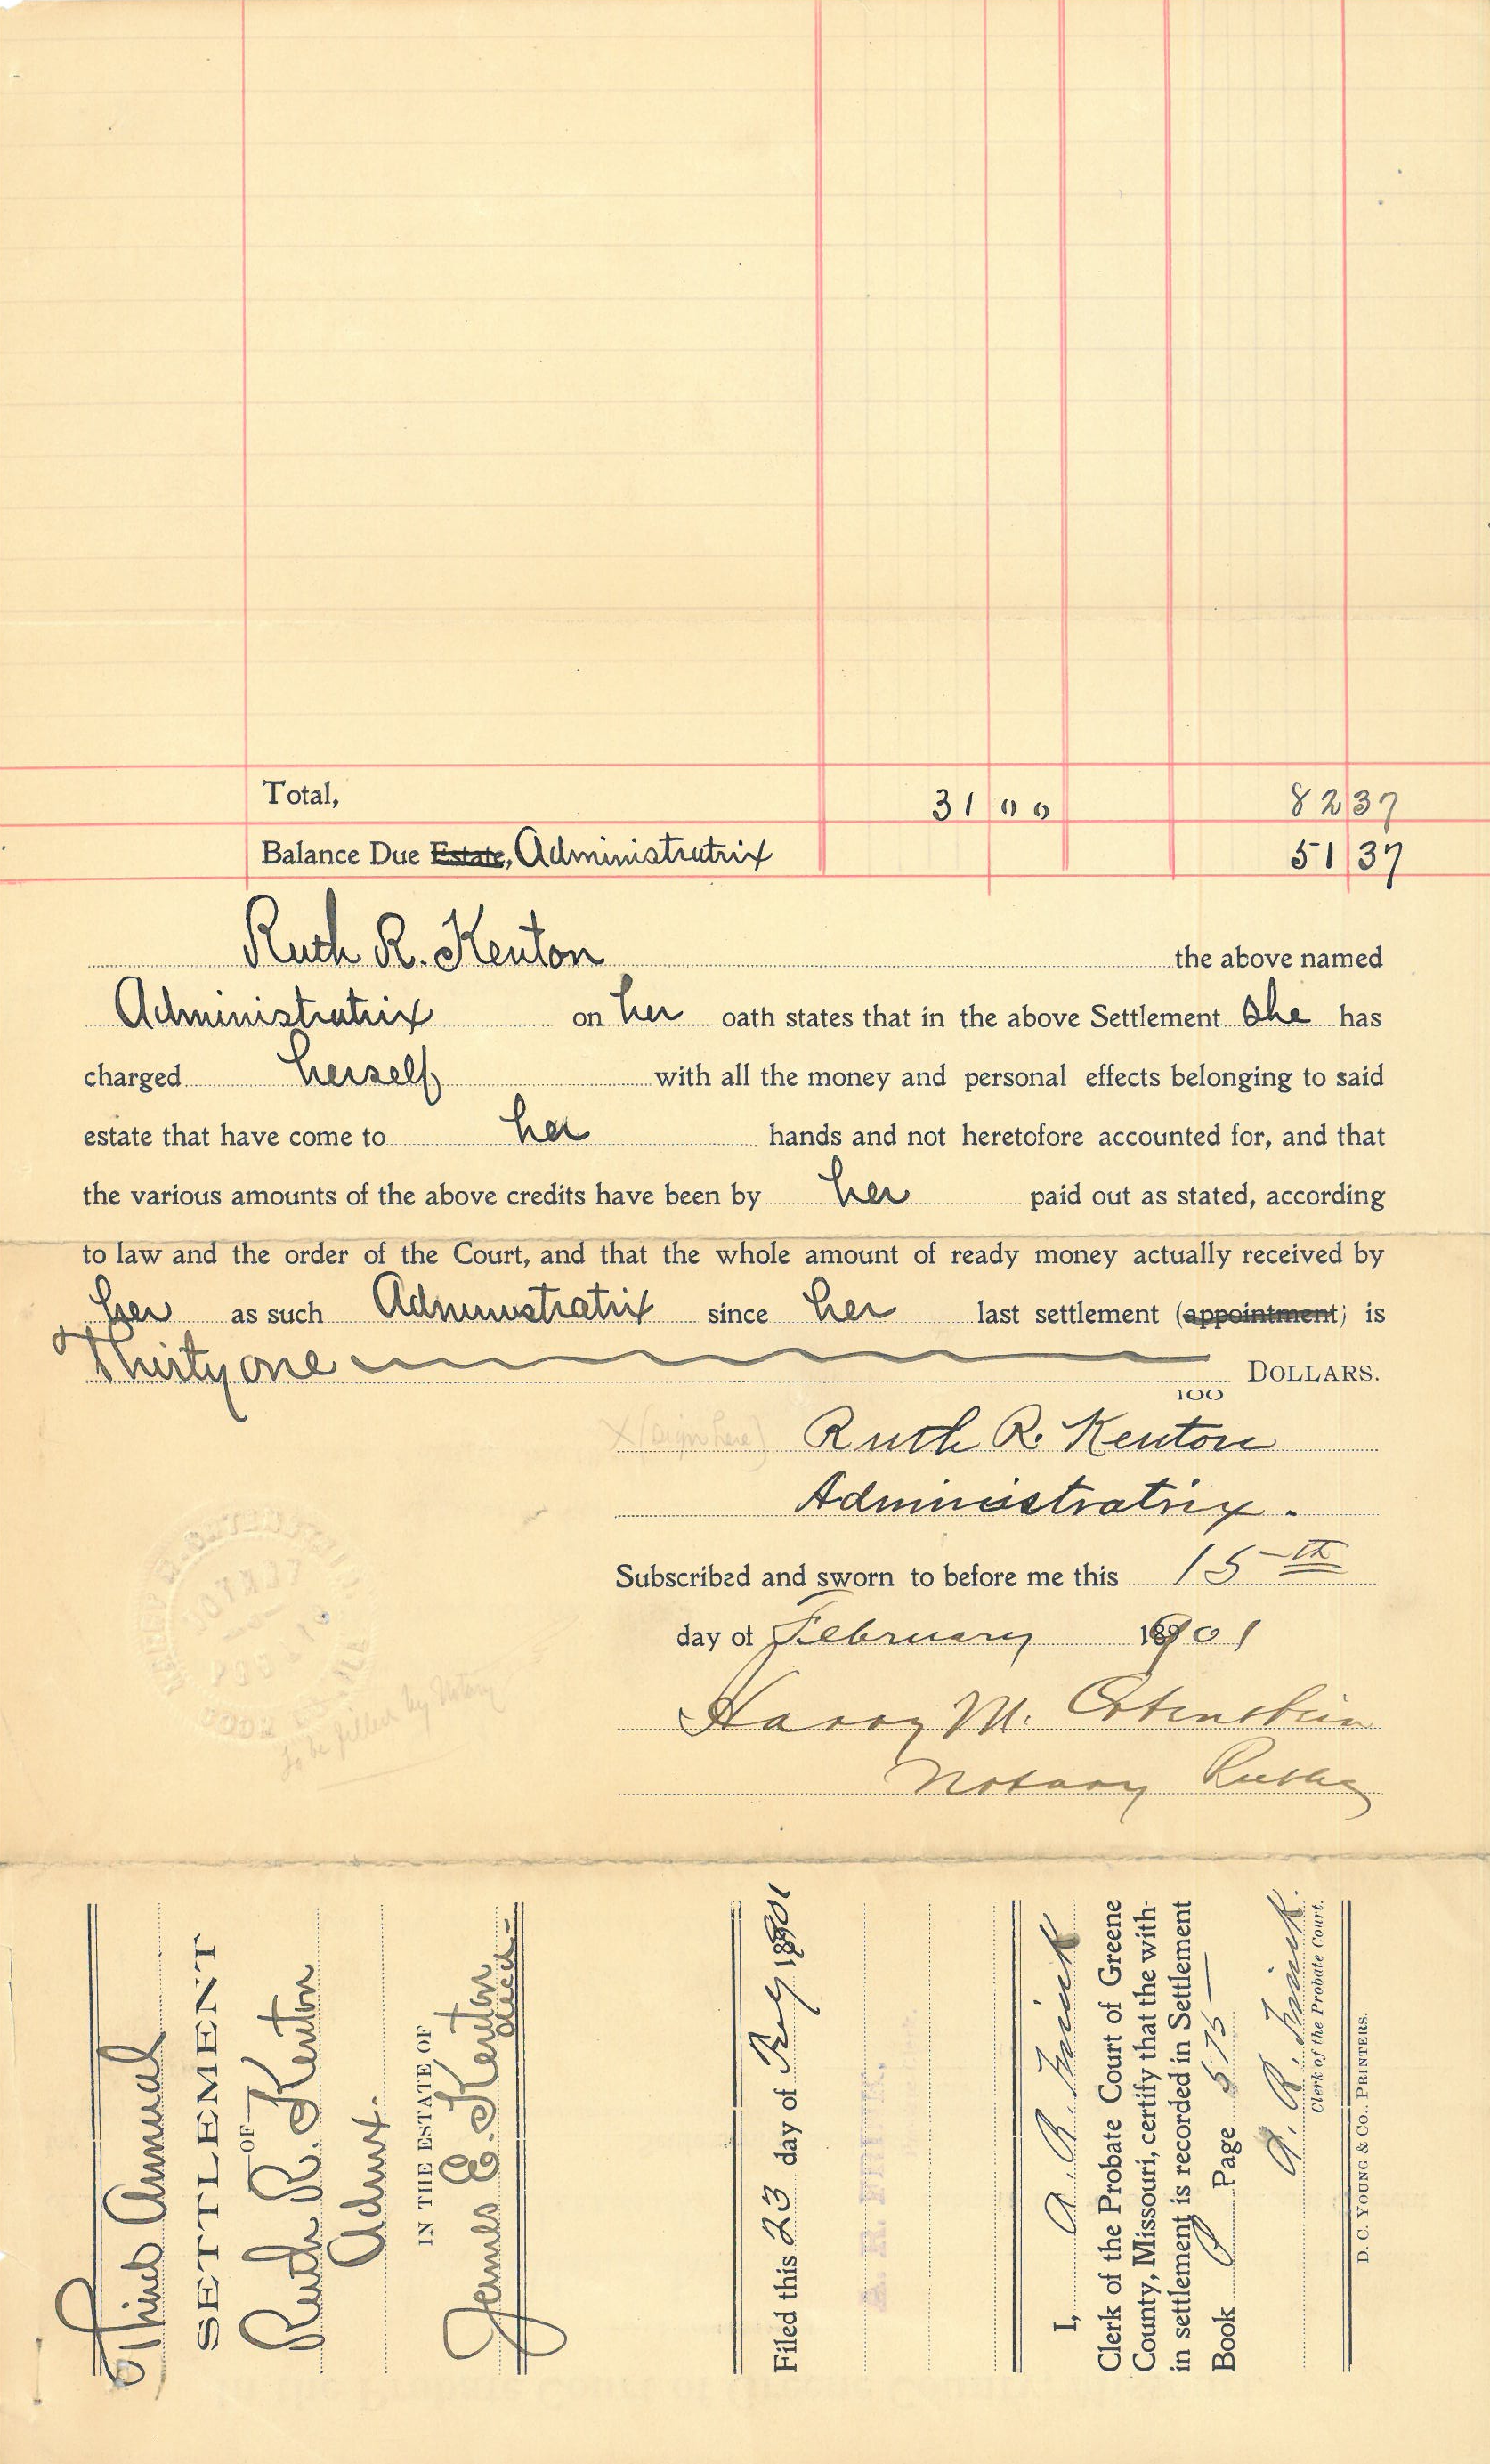 Total, 31 00 82 37
Balance Due Estate, Administratrix 51 37
Ruth R. Kenton the above named
Administratrix on her oath states that in the above Settlement she has
charged herself with all the money and personal effects belonging to said
estate that have come to her hands and not heretofore accounted for, and that
the various amounts of the above credits have been by her paid out as stated, according
to law and the order of the Court, and that the whole amount of ready money actually received by
her as such Administratrix since her last settlement (appointment) is
Thirty one DOLLARS.
100
X (sign here) Ruth R. Kenton
Administratrix.
Subscribed and sworn to before me this 15th
day of February 1901
Harry M.
Notary Public
to be filled by Notary
Third Annual
SETTLEMENT
OF
Ruth R. Kenton
Admx.
IN THE ESTATE OF
James E. Kenton
decd.
Filed this 23 day of 1901
I, A. R.
Clerk of the Probate Court of Greene
County, Missouri, certify that the with-
in settlement is recorded in Settlement
Book Page 575
A. R.
Clerk of the Probate Court.
D. C. YOUNG & CO., PRINTERS.